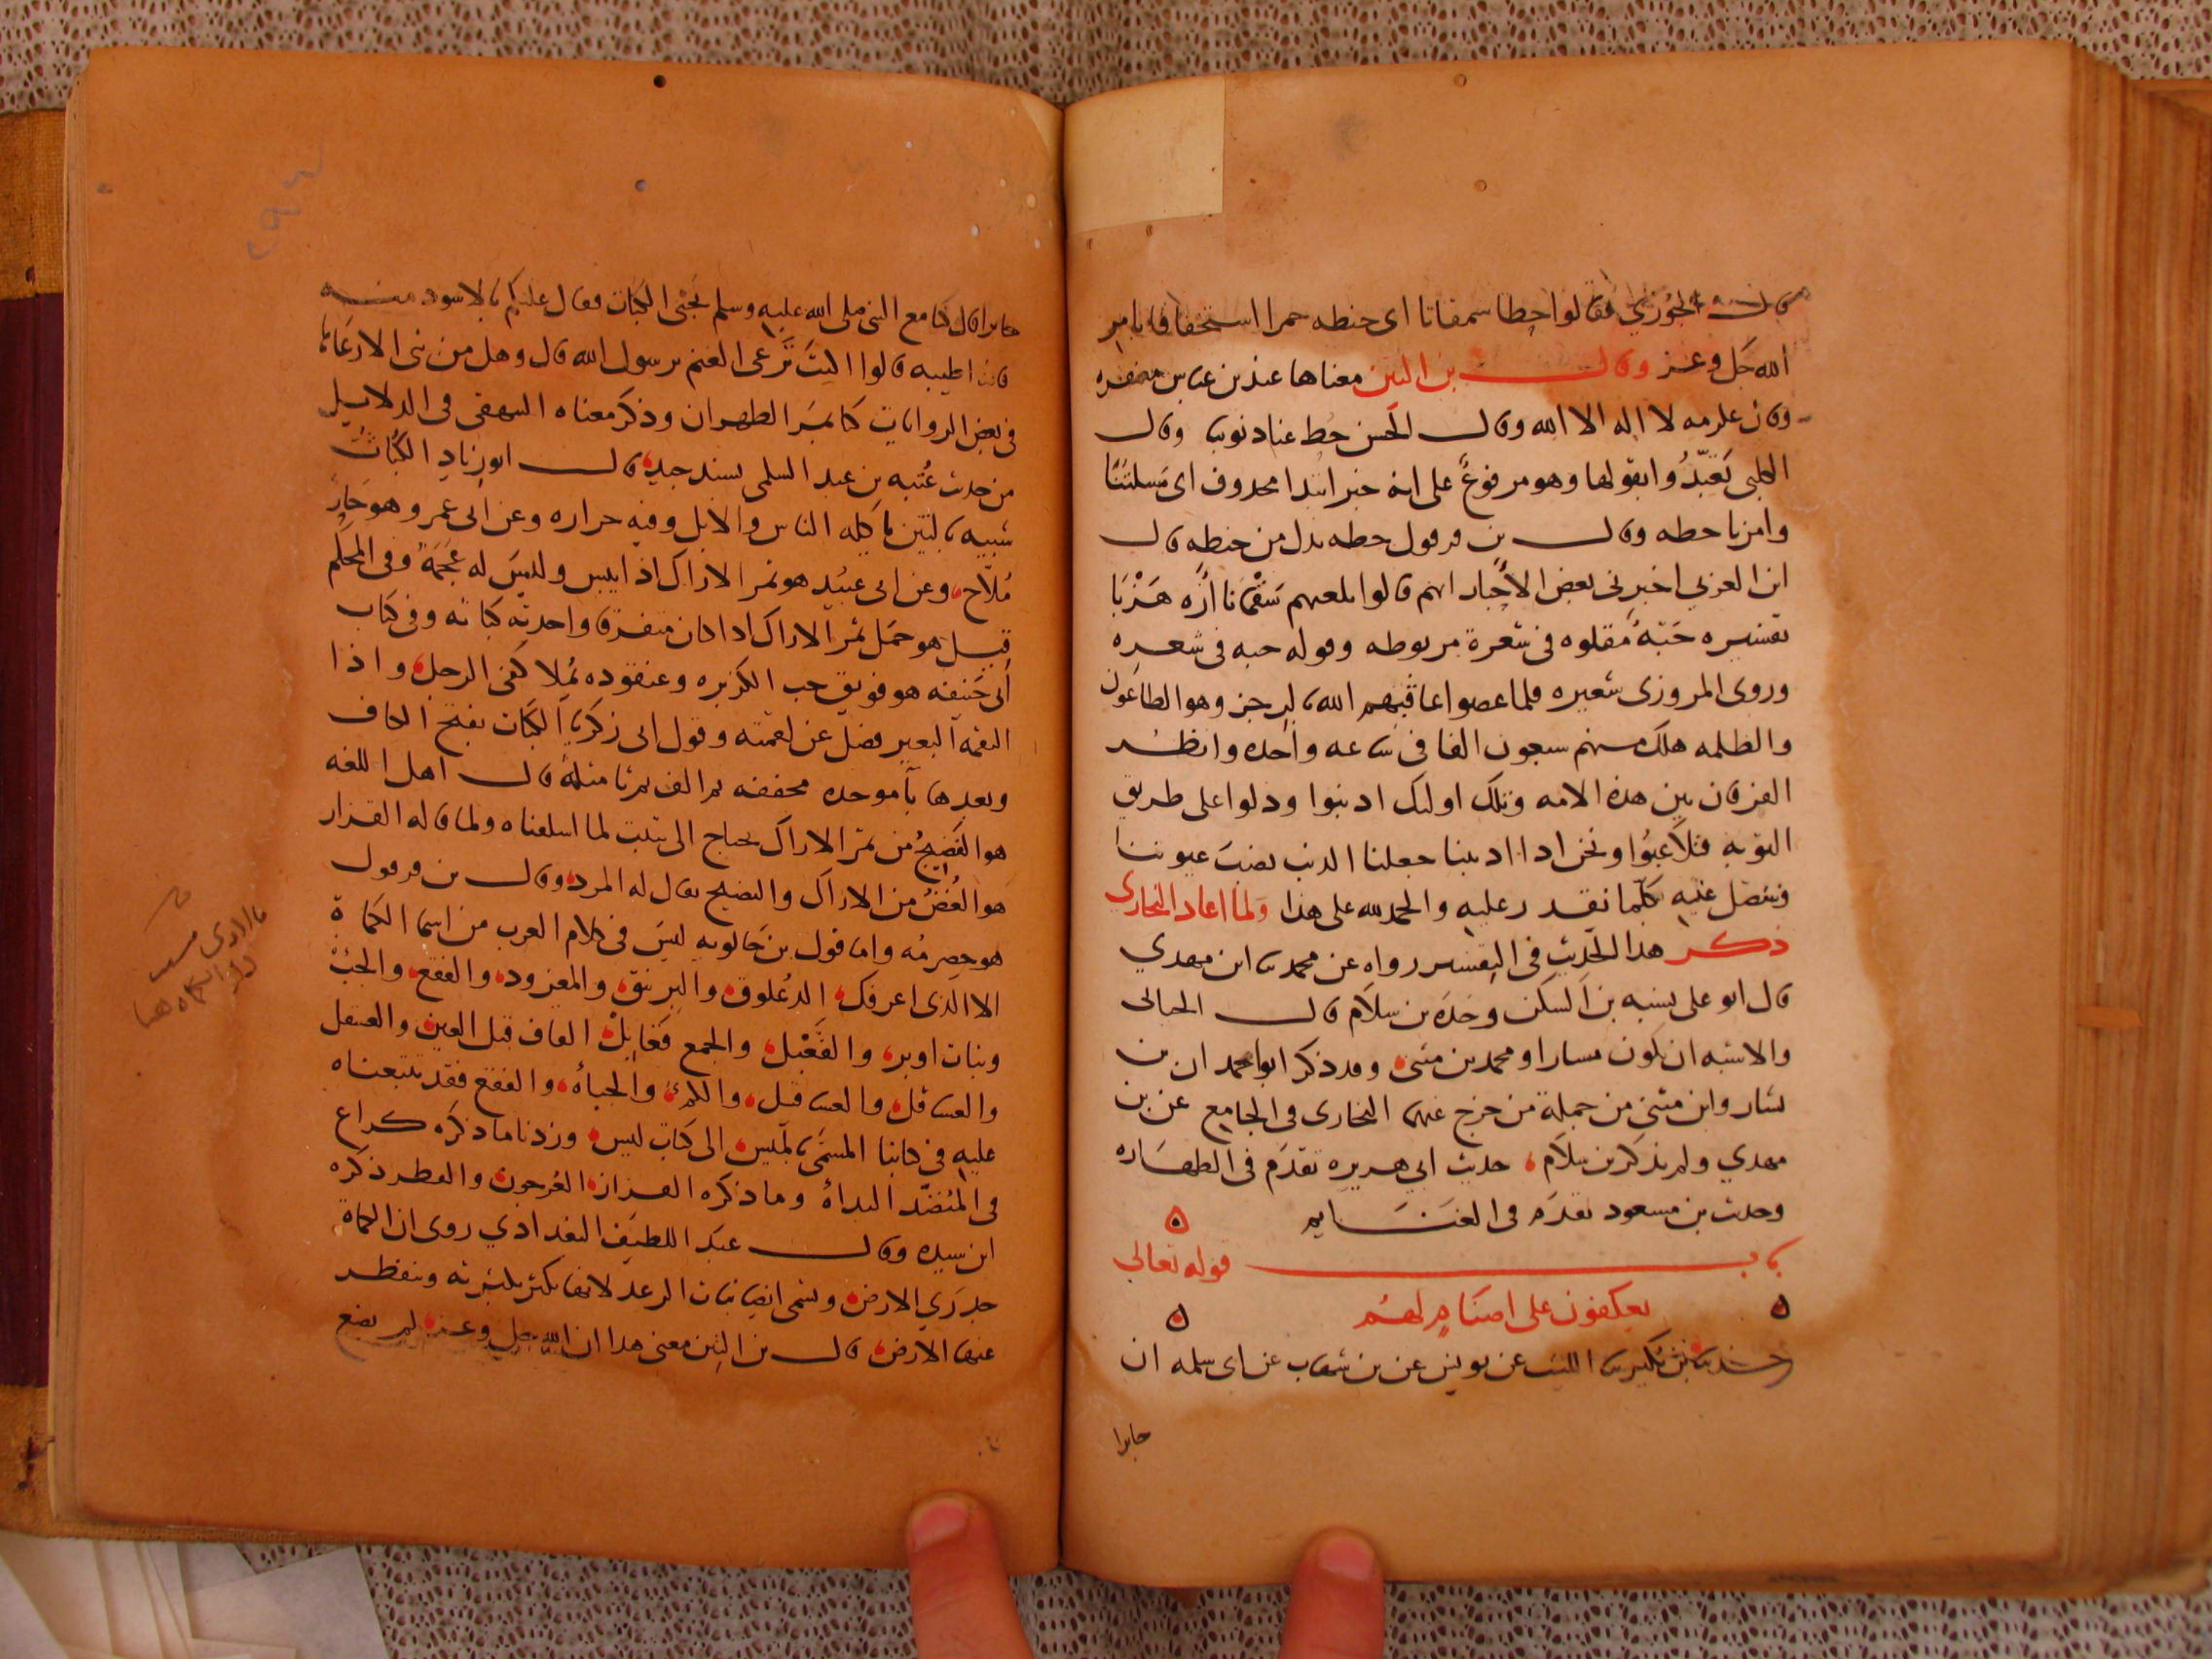 قال الجوزي فقالوا حطا سمقاتا اى حنطه حمرا استخفافا بامر
الله جل وعز وقال بن التين معناها عند بن عباس مغفره
وقال عكرمه لا اله الا الله وقال الحسن حط عنا ذنوبنا وقال
الكلبى تعبدوا بقولها وهو مرفوع على انه خبر ابتدا محذوف اى مسلتنا
وامرنا حطه وقال بن قرقول حطه بدل من حنطه قال
ابن العربي اخبرنى بعض الاحبار انهم قالوا بلغتهم سقمانا ازه هزبا
تفسيره حبة مقلوه فى شعرة مربوطه وقوله حبه فى شعره
وروى المروزى شعيره فلما عصوا عاقبهم الله بالرجز وهو الطاعون
والظلمه هلك منهم سبعون الفا فى ساعه واحده وانظر
الفرقان بين هذه الامه وتلك اوليك اذنبوا ودلوا على طريق
التوبه فتلاعبوا ونحن اذا اذنبنا جعلنا الذنب نصب عيوننا
فنتنصل عنه بكلما نقدر عليه والحمد لله على هذا ولما اعاد البخاري
ذكر هذا الحديث فى التفسير رواه عن محمد سا ابن مهدي
قال ابو على نسبه بن السكن وحده بن سلام قال الجيالى
والاشبه ان يكون بشارا او محمد بن مثنى وقد ذكر ابو احمد ان بن
بشار وابن مثنى من جملة من خرج عنهما البخارى فى الجامع عن بن
مهدي ولم يذكر بن سلام حديث ابي هريره تقدم فى الطهاره
وحديث بن مسعود تقدم فى الغنايم
باب قوله تعالى
يعكفون على اصنام لهم
حدثنا بن بكير سا الليث عن يونس عن بن شهاب عن ابى سلمه ان
جابرا
جابرا قال كنا مع النبى صلى الله عليه وسلم نجنى الكباث فقال عليكم بالاسود منه
فانه اطيبه قالوا اكنت ترعى الغنم يرسول الله قال وهل من نبى الا رعاها
فى بعض الروايات كنا بمر الظهران وذكر معناه البيهقى فى الدلايل
من حديث عتبه بن عبد السلمى بسند جيد قال ابو زياد الكباث
شبيه بالتين ياكله الناس والابل وفيه حراره وعن ابى عمرو هو حار
ملاح وعن ابى عبيد هو ثمر الاراك اذا يبس وليس له عجمة وفى المحكم
قيل هو حمل ثمر الاراك اذا كان متفرقا واحدته كباثه وفى كتاب
ابى حنيفه هو فويق حب الكزبره وعنقوده يملا كفى الرجل واذا
التقمه البعير فضل عن لقمته وقول ابى زكريا الكباث بفتح الكاف
وبعدها بآ موحده مخففه ثم الف ثم ثا مثلثة قال اهل اللغه
هو النضيج من ثمر الاراك يحتاج الى تثبت لما اسلفناه ولما قاله القزاز
هو الغض من الاراك والنضيج يقال له المرد وقال بن قرقول
هو حصرمه واما قول بن خالويه ليس فى كلام العرب من اسما الكماة
الا الذى اعرفك الذعلوق والبرنيق والمغرود والفقع والجبء
وبنات اوبر والقعبل والجمع قعابل القاف قبل العين والعسقل
والعساقل والعساقيل والكمء والجباة والفقع فقد تتبعناه
عليه فى كتابنا المسمى بالميس الى كتاب ليس وزدنا ما ذكره كراع
فى المنضد البداة وما ذكره القزاز العرجون والفطر ذكره
ابن سيده وقال عبد اللطيف البغدادي روى ان الكماة
جدري الارض وتسمى ايضا نبات الرعد لانها تكثر بكثرته وتنفطر
عنها الارض قال بن التين معنى هذا ان الله جل وعز لم يضع